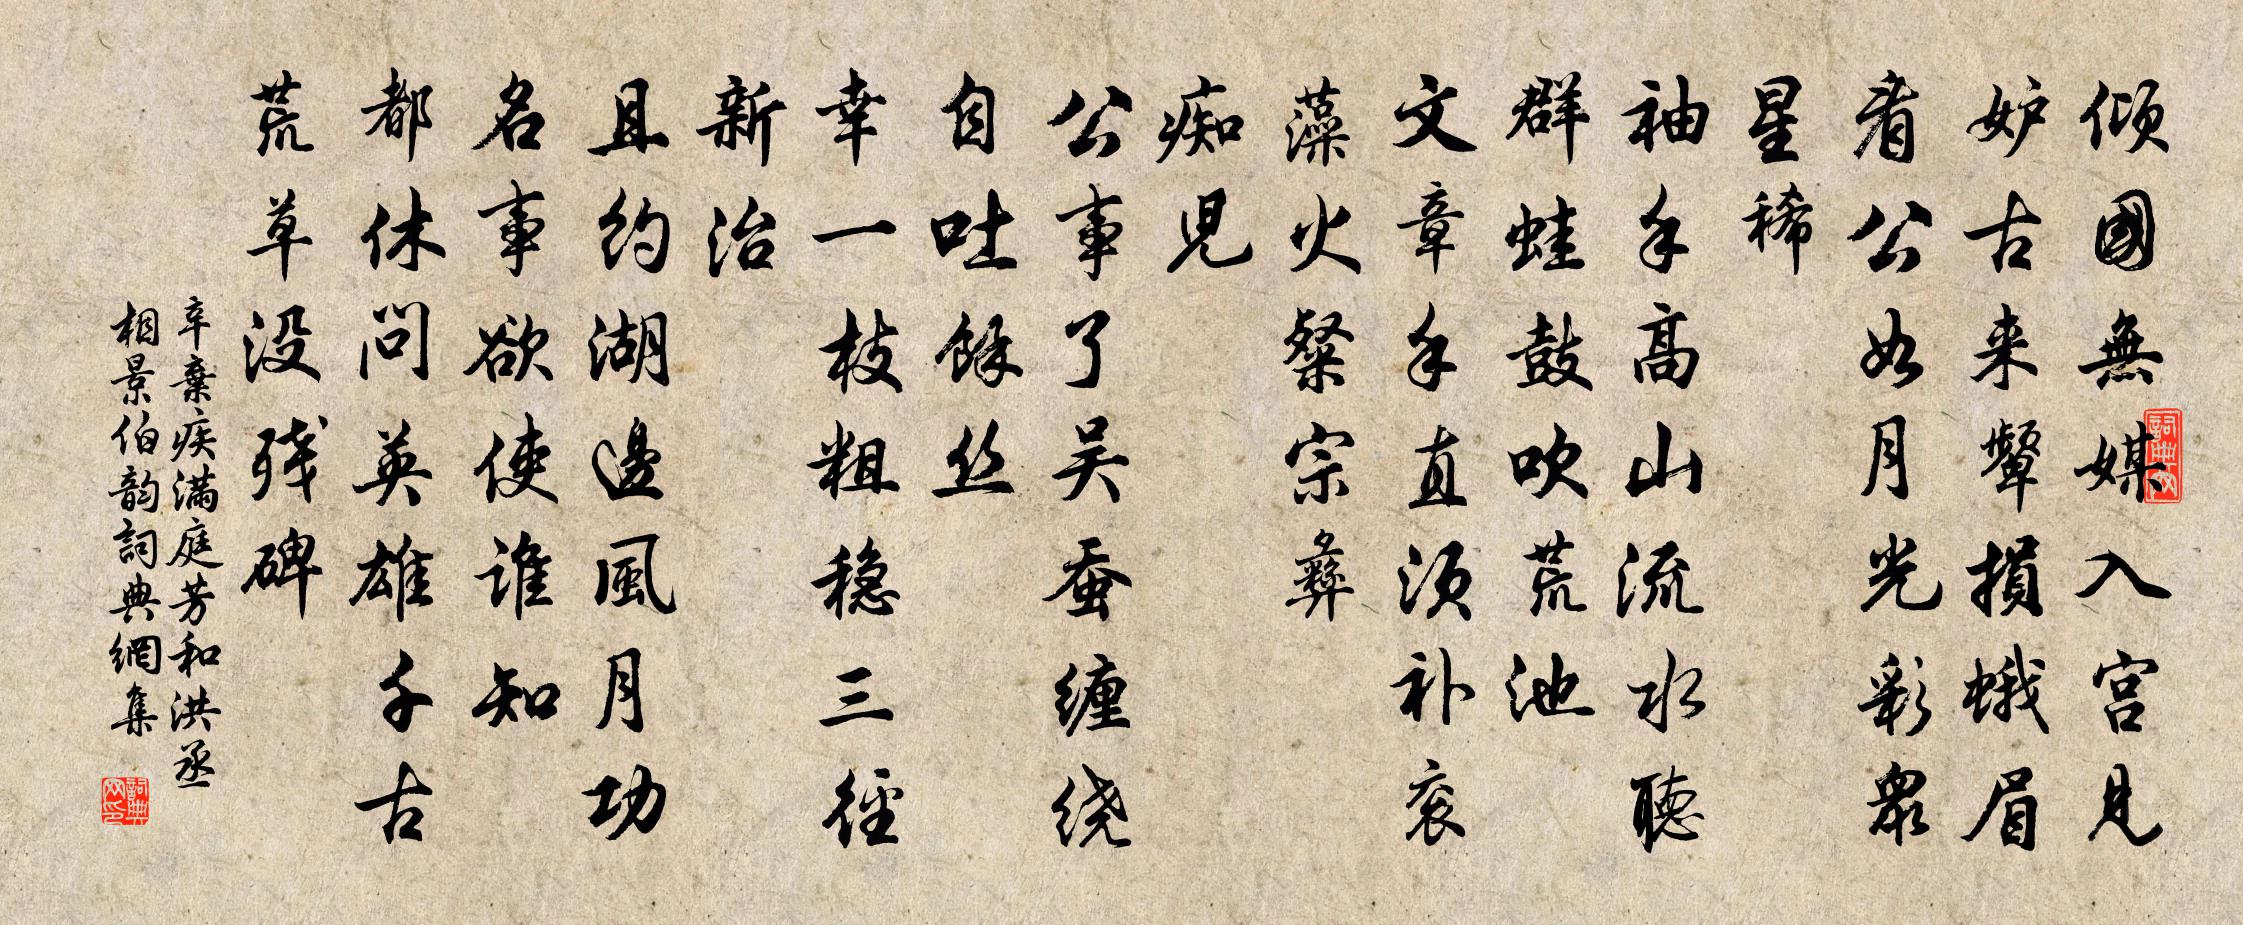 倾國無媒入宫見
妒古来颦損蛾眉
看公如月光彩眾
星稀
袖手高山流水聽
群蛙鼓吹荒池
文章手直须补衮
藻火粲宗彝
痴児
公事了吴蚕缠绕
自吐餘丝
幸一枝粗稳三径
新治
且约湖邊風月功
名事欲使谁知
都休问英雄千古
荒草没残碑
辛棄疾满庭芳和洪丞
相景伯韵詞典網集
詞典网
詞典网印